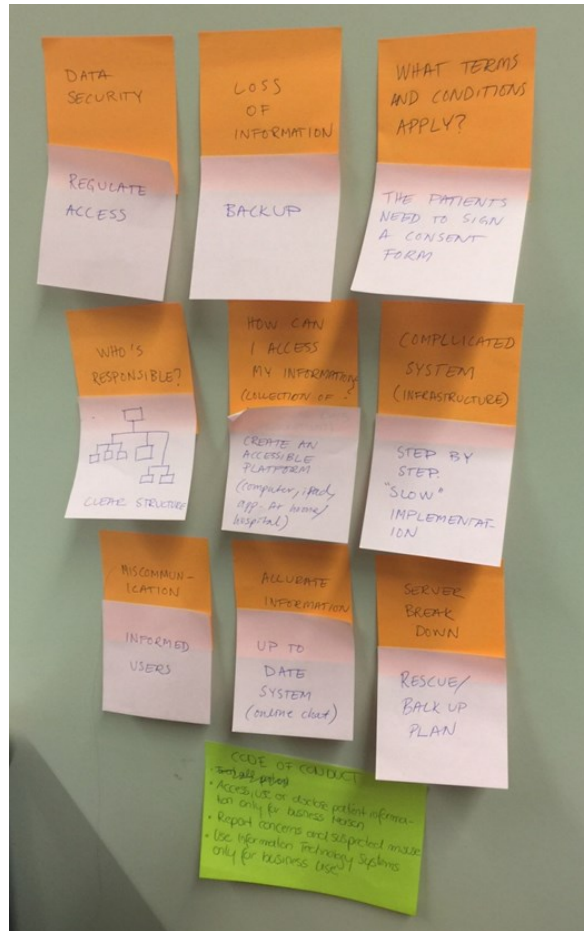 DATA
SECURITY
REGULATE
ACCESS
LOSS
OF
INFORMATION
BACKUP
WHAT TERMS
AND CONDITIONS
APPLY?
THE PATIENTS
NEED TO SIGN
A CONSENT
FORM
WHO'S
RESPONSIBLE?
CLEAR STRUCTURE
HOW CAN
I ACCESS
MY INFORMATION
(COLLECTION OF
CREATE AN
ACCESSIBLE
PLATFORM
(computer, ipad,
app. at home/
hospital)
COMPLLICATED
SYSTEM
(INFRASTRUCTURE)
STEP BY
STEP.
"SLOW"
IMPLEMENTAT-
ION
MISCOMMUN-
ICATION
INFORMED
USERS
ACCURATE
INFORMATION
UP TO
DATE
SYSTEM
(online chat)
SERVER
BREAK
DOWN
RESCUE/
BACK UP
PLAN
CODE OF CONDUCT
• Access, use or disclose patient informa-
tion only for business reason
• Report concerns and suspected misuse
• Use Information Technology Systems
only for business use